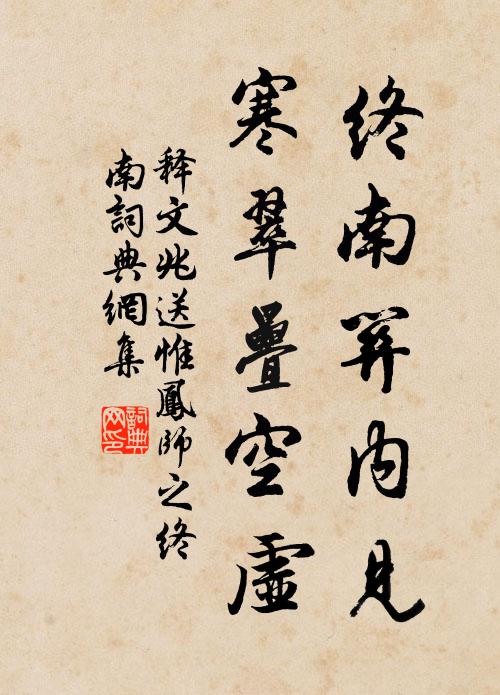 终南關内見
寒翠疊空虛
释文兆送惟鳳師之终
南詞典網集
詞典网印